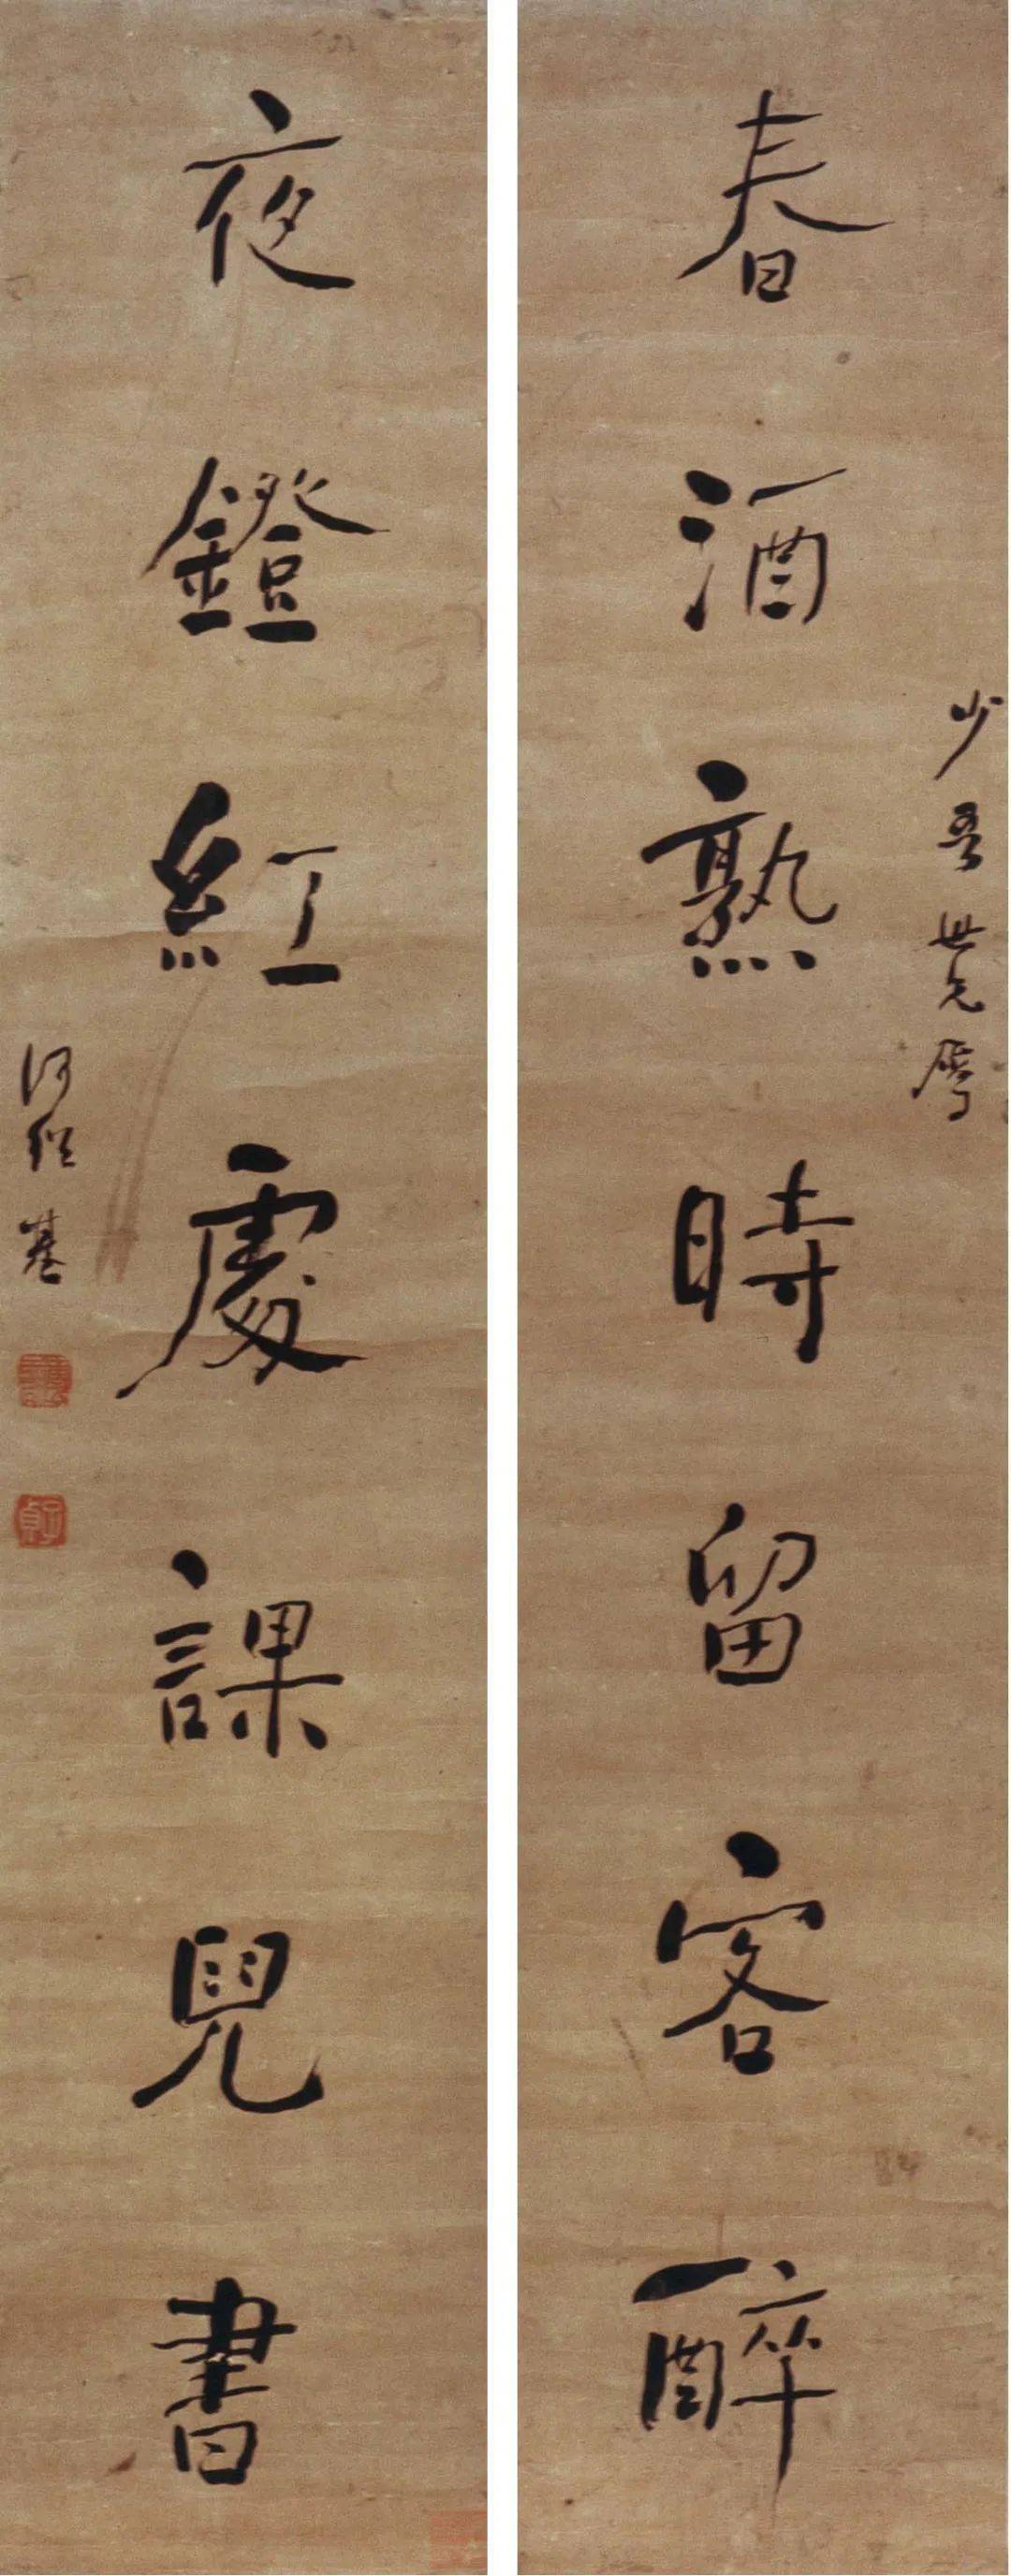 少吾世兄屬
春酒熟時留客醉
夜鐙紅處課兒書
何紹基
子貞